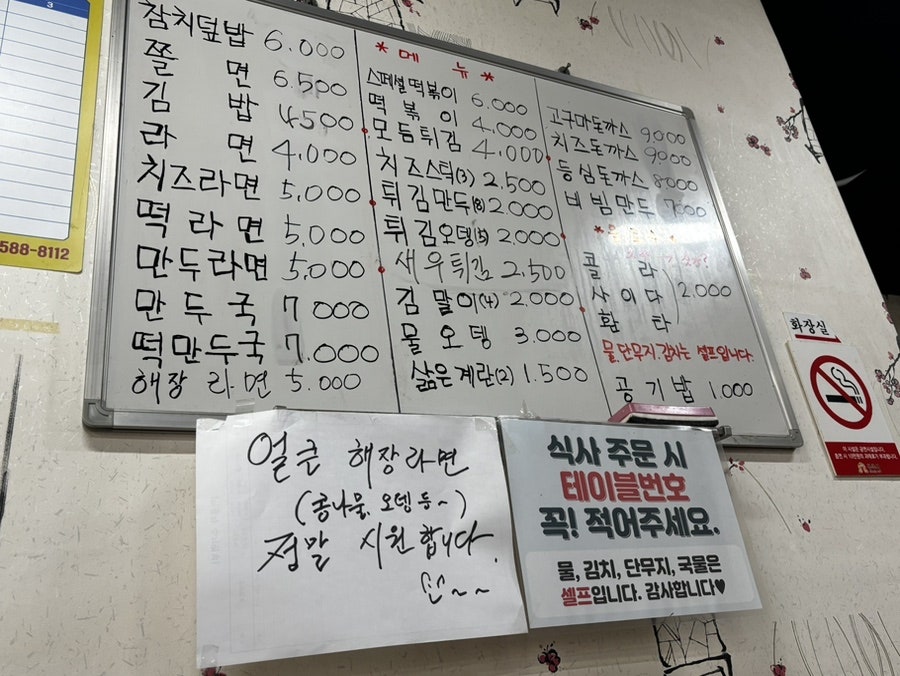 3
588-8112
참치덮밥 6.000
쫄면 6.500
김밥 4500
라면 4,000
치즈라면 5,000
떡라면 5,000
만두라면 5,000
만두국 7000
떡만두국 7.000
해장라면 5.000
*메뉴*
스페셜떡볶이 6,000
떡볶이 4,000
모듬튀김 4,000
치즈스틱(3) 2,500
튀김만두(8) 2,000
튀김오뎅(5) 2,000
새우튀김 2,500
김말이(4) 2,000
물오뎅 3,000
삶은계란(2) 1.500
고구마돈까스 9,000
치즈돈까스 9000
등심돈까스 8000
비빔만두 7000
콜라
사이다 2,000
환타
물,단무지,김치는 셀프입니다.
공기밥 1.000
얼큰 해장라면
(콩나물, 오뎅 등~)
정말 시원합니다.
식사 주문 시
테이블번호
꼭! 적어주세요.
물, 김치, 단무지, 국물은
셀프입니다. 감사합니다♥
화장실